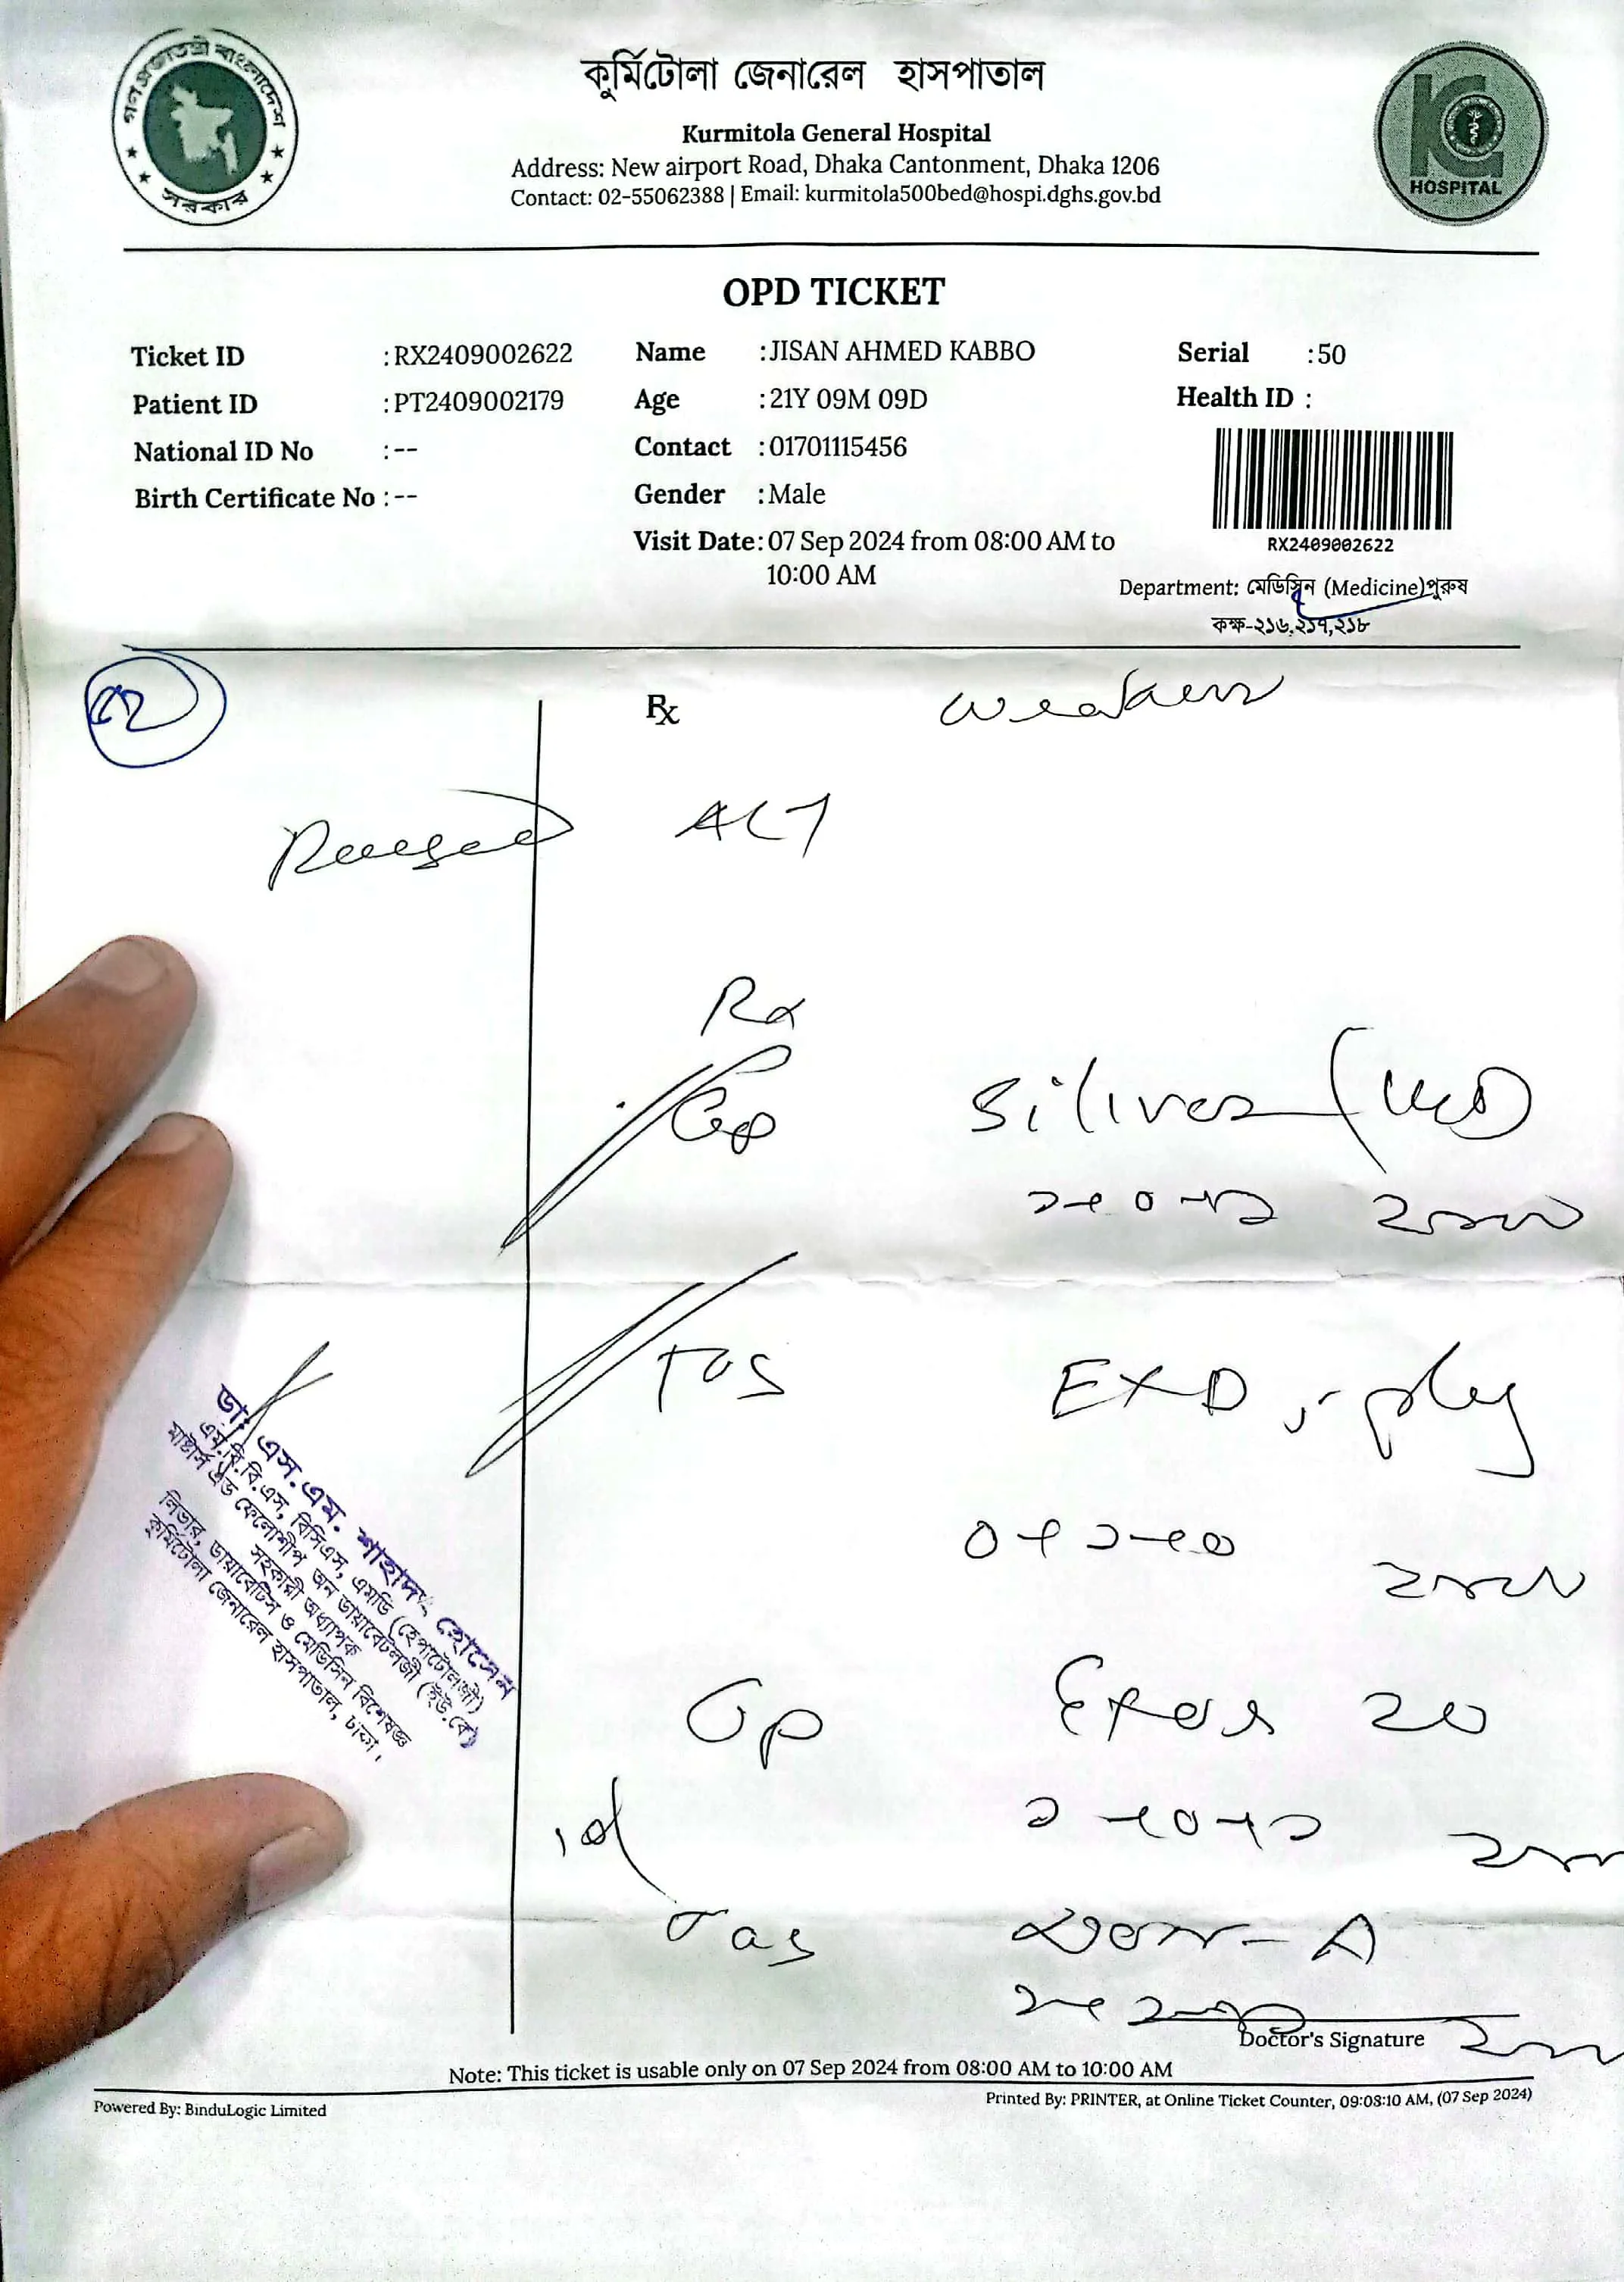 গণপ্রজাতন্ত্রী বাংলাদেশ
সরকার
কুর্মিটোলা জেনারেল হাসপাতাল
Kurmitola General Hospital
Address: New airport Road, Dhaka Cantonment, Dhaka 1206
Contact: 02-55062388 | Email: kurmitola500bed@hospi.dghs.gov.bd
HOSPITAL
OPD TICKET
Ticket ID :RX2409002622
Patient ID :PT2409002179
National ID No :--
Birth Certificate No :--
Name :JISAN AHMED KABBO
Age :21Y 09M 09D
Contact :01701115456
Gender :Male
Visit Date:07 Sep 2024 from 08:00 AM to
10:00 AM
Serial :50
Health ID :
RX2409002622
Department: মেডিসিন (Medicine)পুরুষ
কক্ষ-২১৬,২১৭,২১৮
Rx
ALT
Rx
Cap
১+০+১
Tab
০+১+০
Cap 20
১+০+১
Tab
ডা. এস.এম. শাহাদৎ হোসেন
এম.বি.বি.এস, বিসিএস, এমডি (হেপাটোলজী)
মাষ্টার্স এন্ড ফেলোশীপ অন ডায়াবেটলজী (ইউ.কে)
সহকারী অধ্যাপক
লিভার, ডায়াবেটিস ও মেডিসিন বিশেষজ্ঞ
কুর্মিটোলা জেনারেল হাসপাতাল, ঢাকা।
Doctor's Signature
Note: This ticket is usable only on 07 Sep 2024 from 08:00 AM to 10:00 AM
Powered By: BinduLogic Limited
Printed By: PRINTER, at Online Ticket Counter, 09:08:10 AM, (07 Sep 2024)